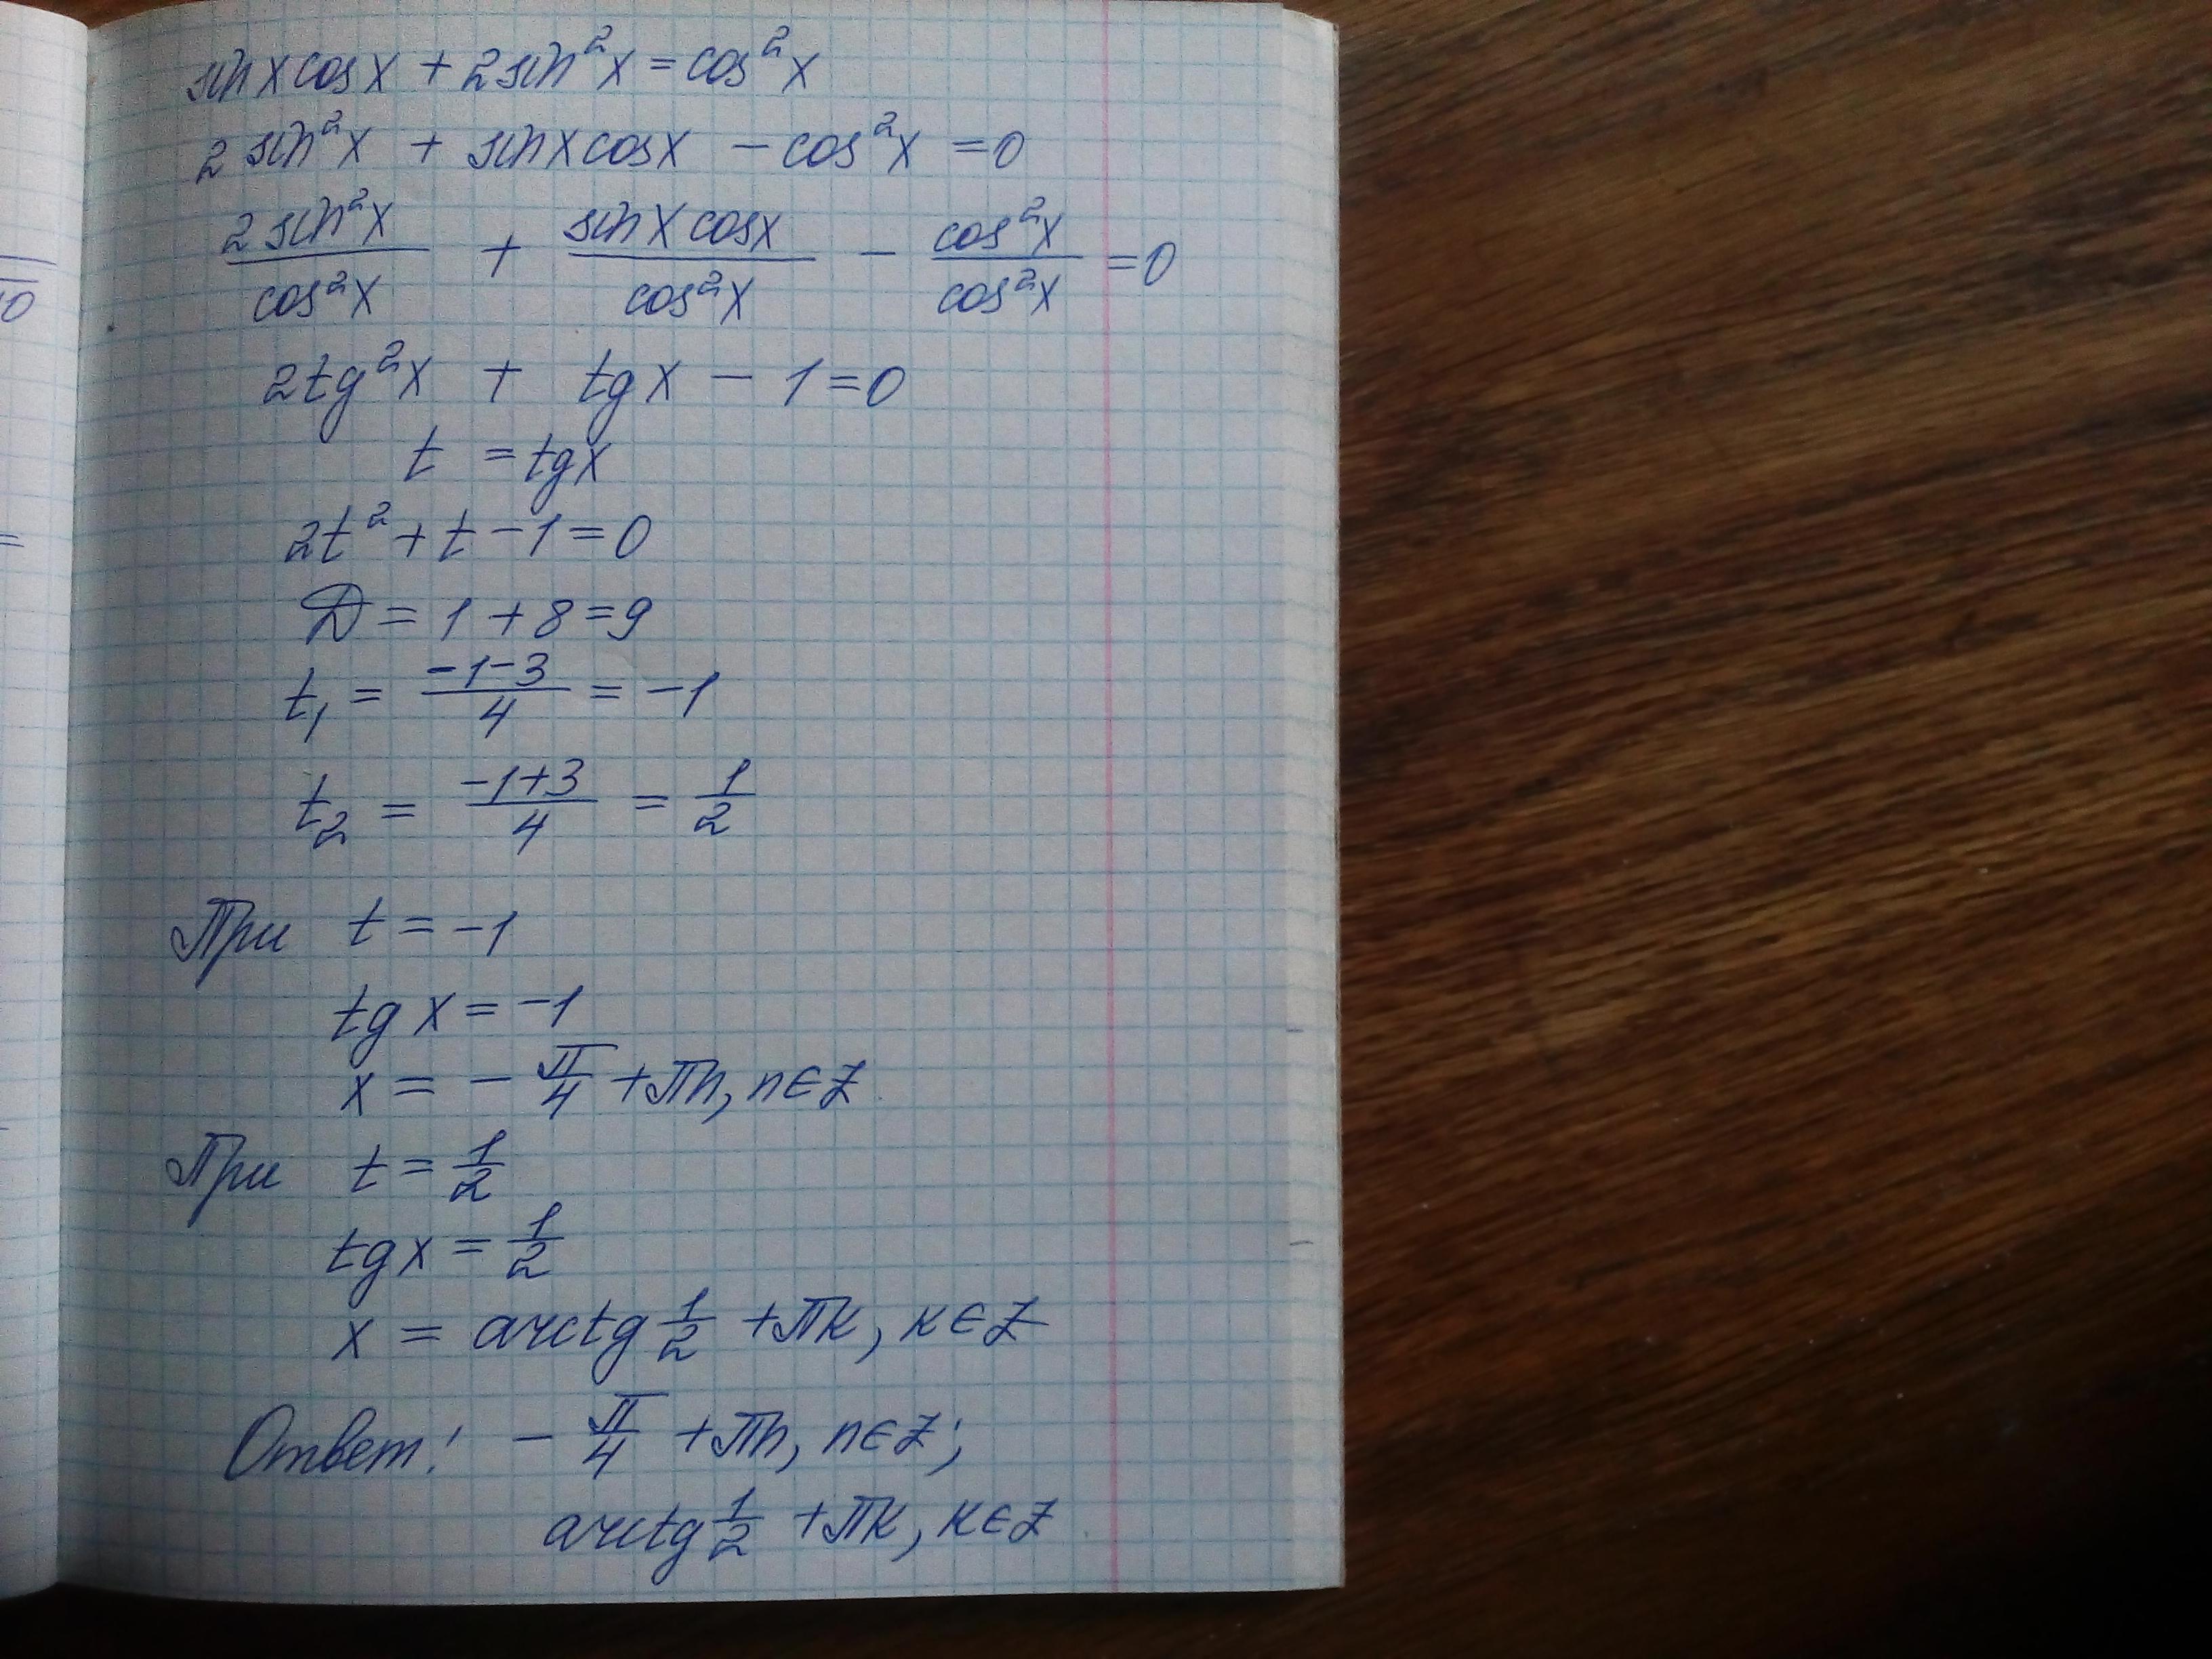 sin x cos x + 2 sin²x = cos²x
2 sin²x + sin x cos x − cos²x = 0
2 sin²x/cos²x + sin x cos x/cos²x − cos²x/cos²x = 0
2tg²x + tg x − 1 = 0
t = tg x
2t² + t − 1 = 0
Д = 1 + 8 = 9
t₁ = (−1−3)/4 = −1
t₂ = (−1+3)/4 = 1/2
При t = −1
tg x = −1
x = − π/4 + πn, n ∈ Z
При t = 1/2
tg x = 1/2
x = arctg 1/2 + πк, к ∈ Z
Ответ: − π/4 + πn, n ∈ Z;
arctg 1/2 + πк, к ∈ Z